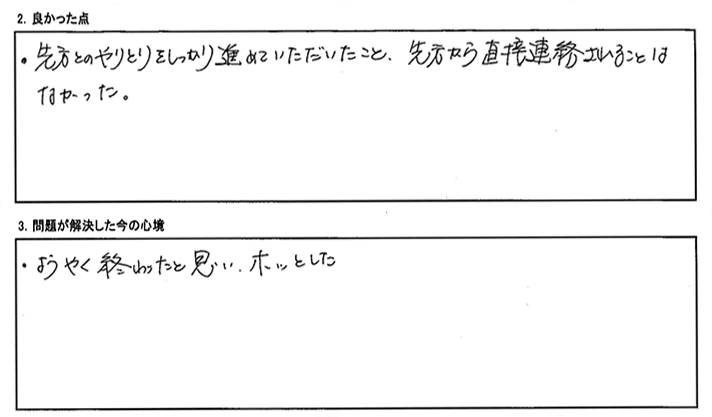 2. 良かった点
・先方とのやりとりをしっかり進めていただいたこと、先方から直接連絡されることは
なかった。
3. 問題が解決した今の心境
・ようやく終わったと思い、ホッとした